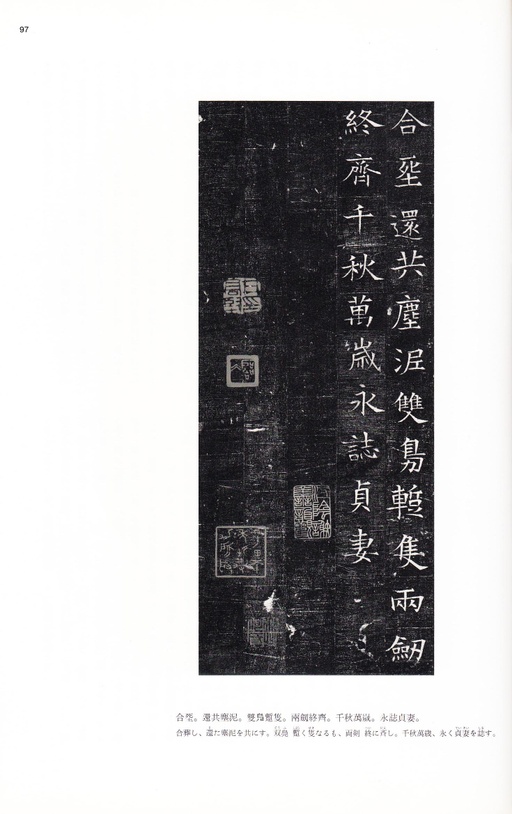 97
合塟還共塵泥雙鳧蹔隻兩劒
終齊千秋萬歳永誌貞妻
合塟。還共塵泥。雙鳧蹔隻。兩劒終齊。千秋萬歳。永誌貞妻。
合葬し、還た塵泥を共にす。双鳧 蹔く隻なるも、両剣 終に斉し。千秋萬歳、永く貞妻を誌す。